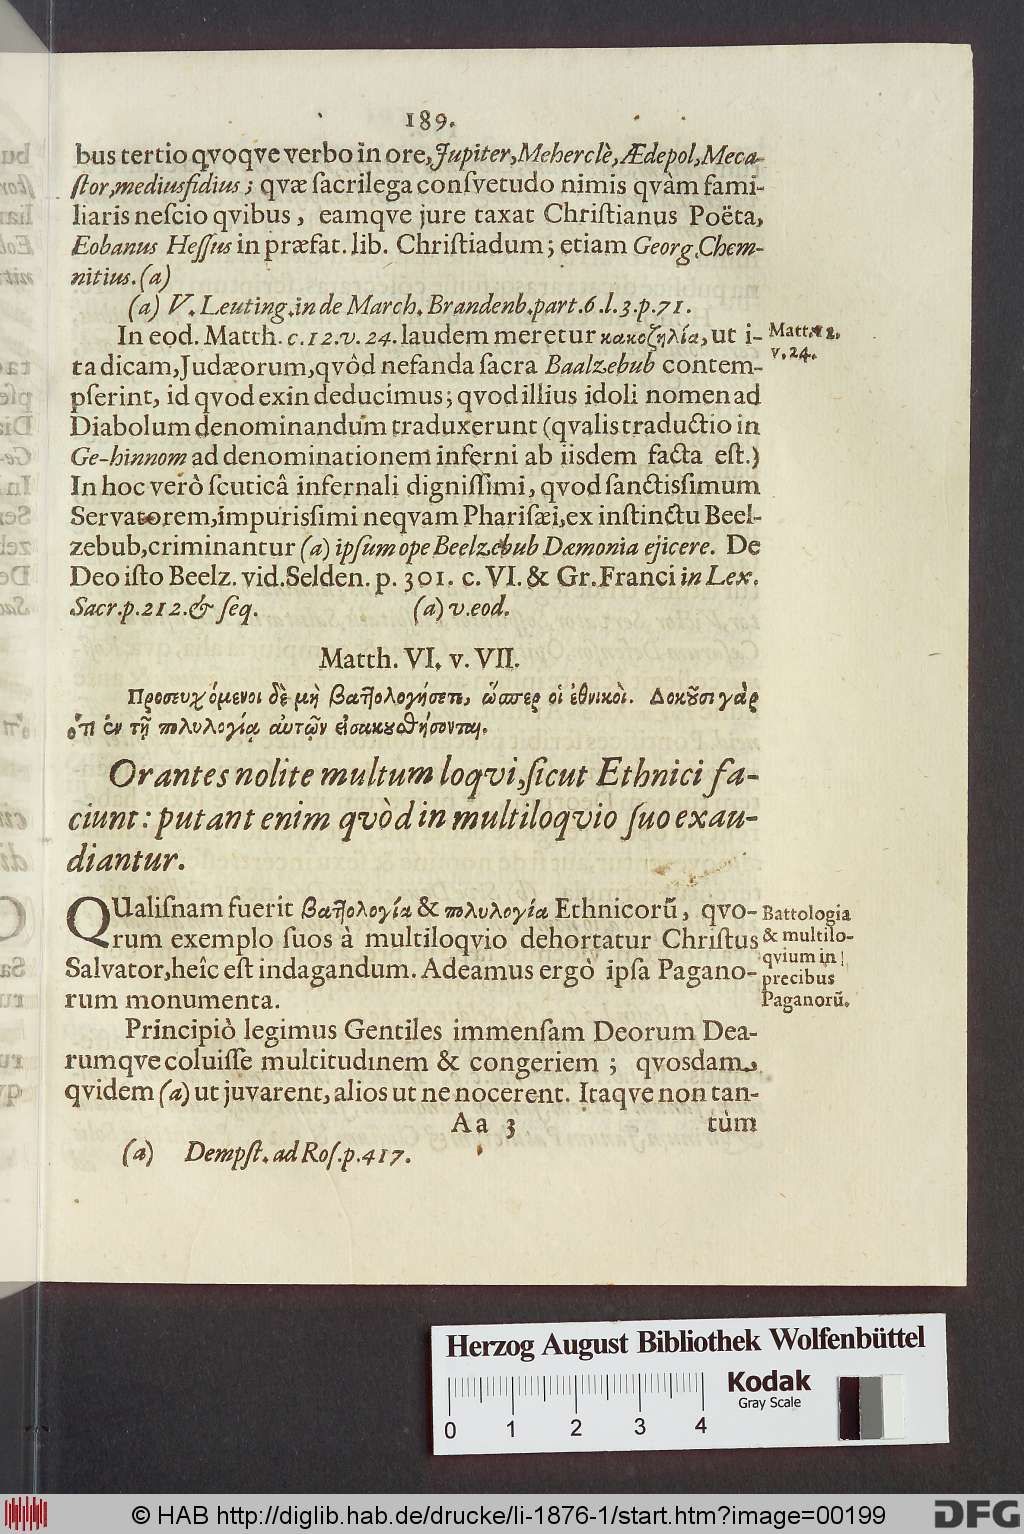 189.
bus tertio qvoqve verbo in ore, Jupiter, Meherclè, Ædepol, Meca-
ſtor, mediusfidius; qvæ ſacrilega conſvetudo nimis qvàm fami-
liaris neſcio qvibus, eamqve jure taxat Chriſtianus Poëta,
Eobanus Heſſus in præfat. lib. Chriſtiadum; etiam Georg. Chem-
nitius. (a)
(a) V. Leuting. in de March. Brandenb. part. 6. l. 3. p. 71.
In eod. Matth. c. 12. v. 24. laudem meretur κακοζηλία, ut i-
ta dicam, Judæorum, qvôd nefanda ſacra Baalzebub contem-
pſerint, id qvod exin deducimus; qvod illius idoli nomen ad
Diabolum denominandum traduxerunt (qvalis traductio in
Ge-hinnom ad denominationem inferni ab iisdem facta eſt.)
In hoc verò ſcuticâ infernali digniſſimi, qvod ſanctisſimum
Servatorem, impurisſimi neqvam Phariſæi, ex inſtinctu Beel-
zebub, criminantur (a) ipſum ope Beelzebub Dæmonia ejicere. De
Deo iſto Beelz. vid. Selden. p. 301. c. VI. & Gr. Franci in Lex.
Sacr. p. 212. & ſeq. (a) v. eod.
Matt. 12.
v. 24.
Matth. VI. v. VII.
Προσευχόμενοι δὲ μὴ βαττολογήσετε, ὥσπερ οἱ ἐθνικοί. Δοκοῦσι γὰρ
ὅτι ἐν τῇ πολυλογίᾳ αὐτῶν εἰσακουσθήσονται.
Orantes nolite multum loqvi, ſicut Ethnici fa-
ciunt: putant enim qvòd in multiloqvio ſuo exau-
diantur.
QUaliſnam fuerit βαττολογία & πολυλογία Ethnicorũ, qvo-
rum exemplo ſuos à multiloqvio dehortatur Chriſtus
Salvator, heîc eſt indagandum. Adeamus ergò ipſa Pagano-
rum monumenta.
Battologia
& multilo-
qvium in
precibus
Paganorũ.
Principiò legimus Gentiles immenſam Deorum Dea-
rumqve coluiſſe multitudinem & congeriem; qvosdam
qvidem (a) ut juvarent, alios ut ne nocerent. Itaqve non tan-
Aa 3 tùm
(a) Dempſt. ad Roſ. p. 417.
Herzog August Bibliothek Wolfenbüttel
0 1 2 3 4
Kodak
Gray Scale
© HAB http://diglib.hab.de/drucke/li-1876-1/start.htm?image=00199
DFG